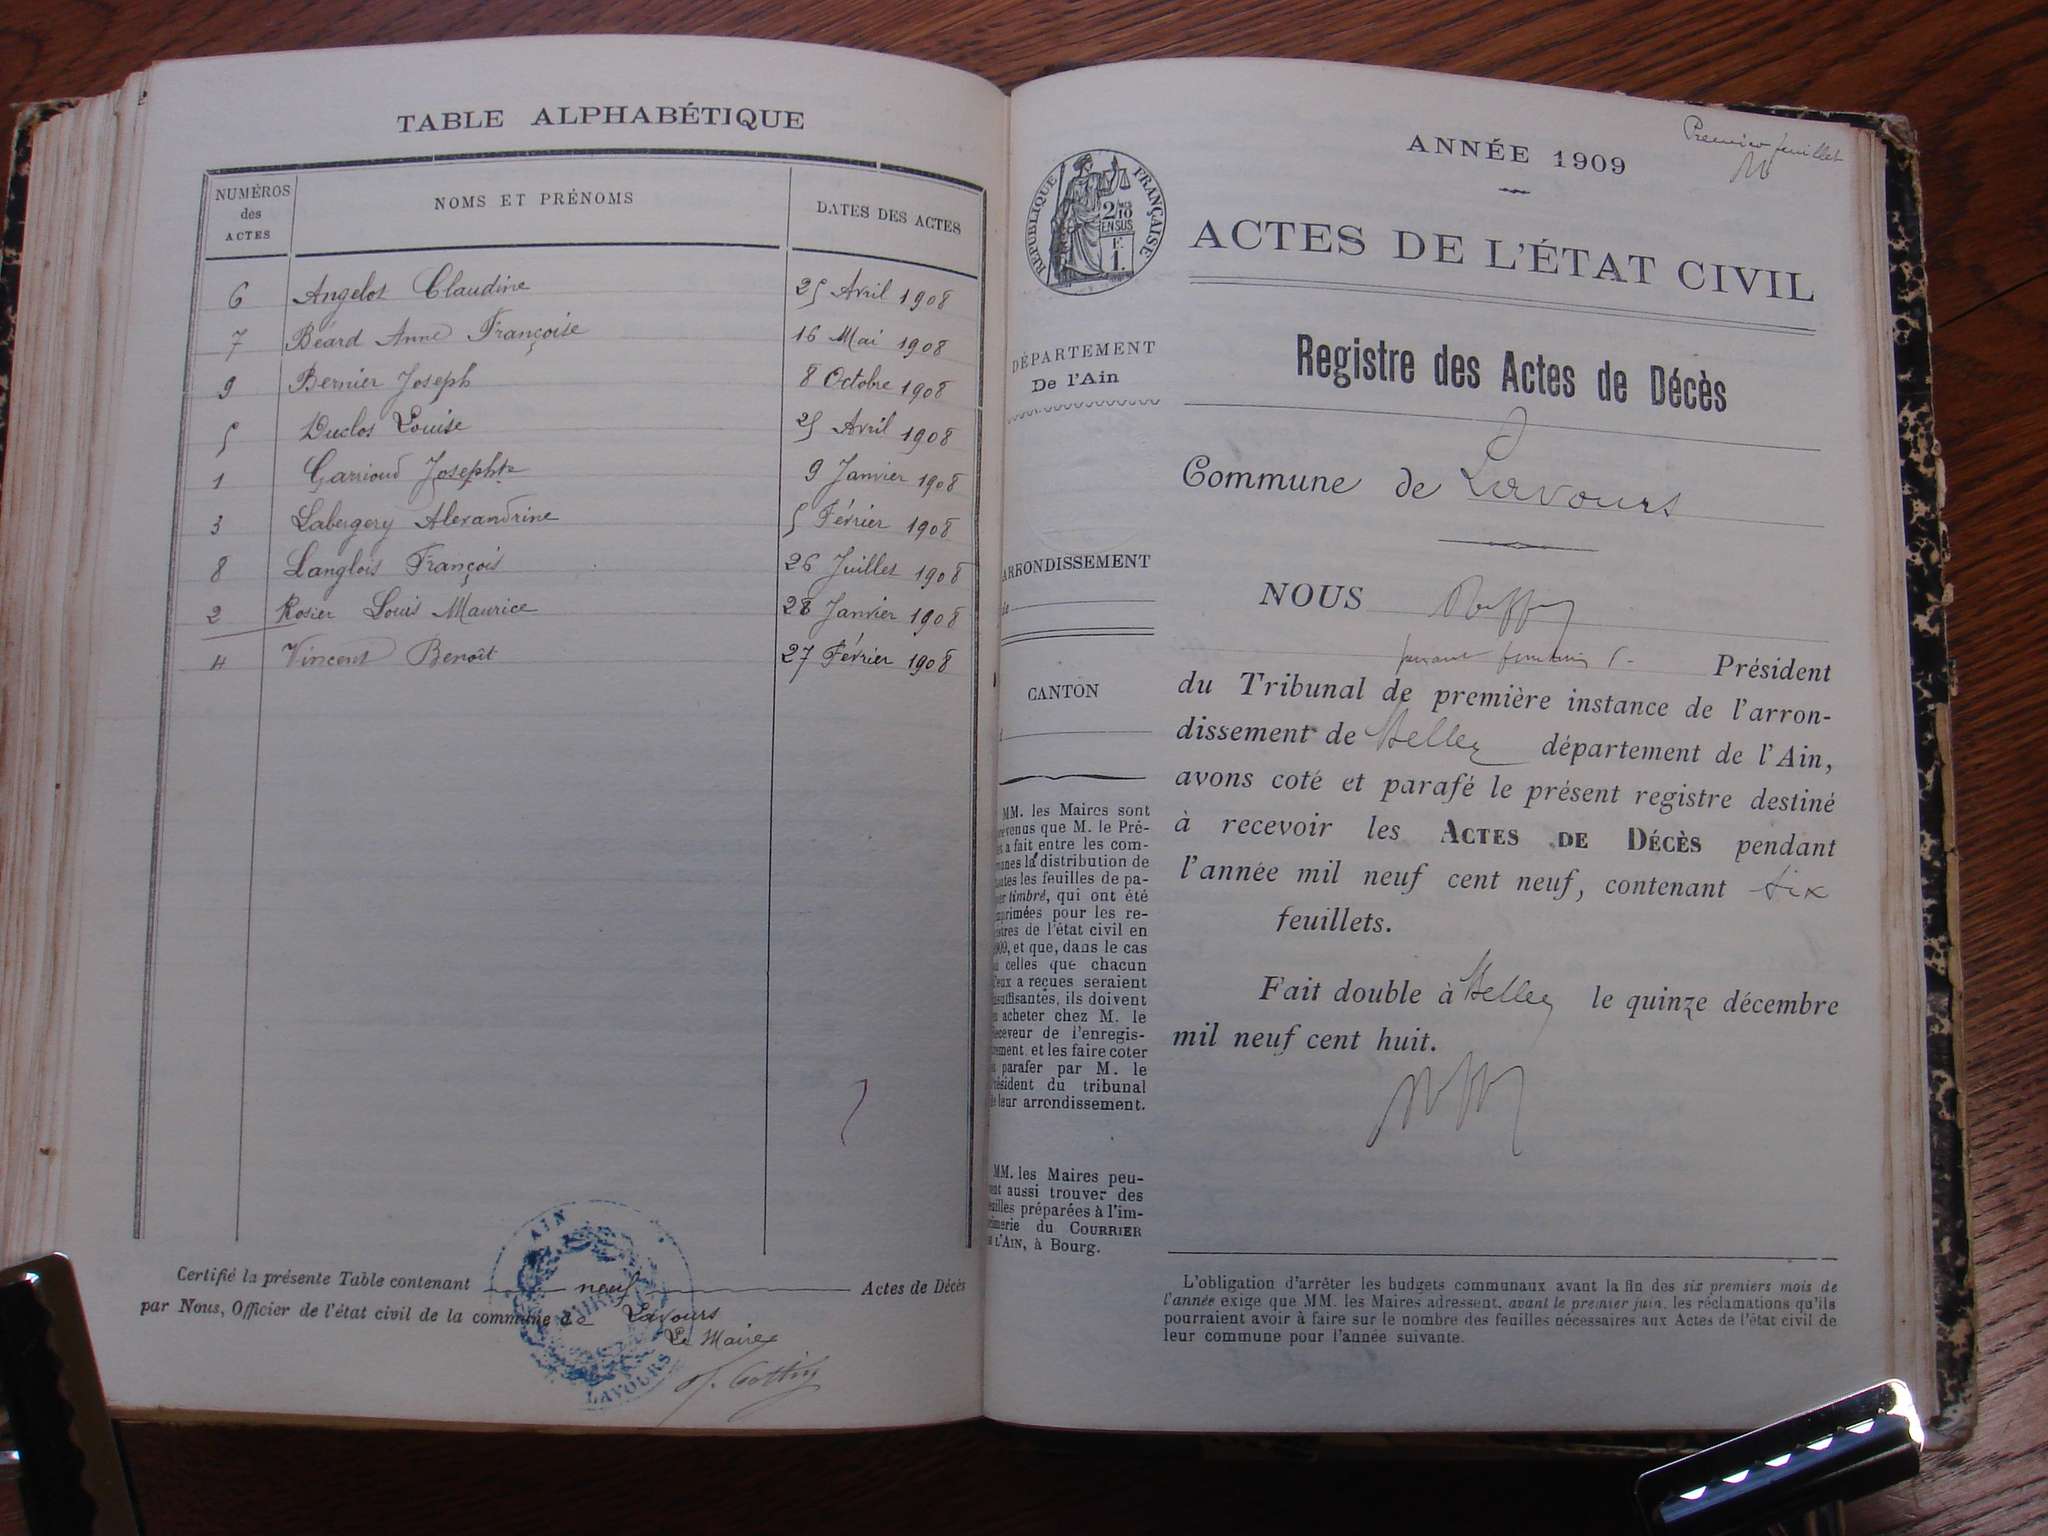 TABLE ALPHABÉTIQUE
NUMÉROS des ACTES NOMS ET PRÉNOMS DATES DES ACTES
6 Angelot Claudine 25 Avril 1908
7 Béard Anne Françoise 16 Mai 1908
9 Bernier Joseph 8 Octobre 1908
5 Duclos Louise 25 Avril 1908
1 Garrioud Josephte 9 Janvier 1908
3 Labergery Alexandrine 5 Février 1908
8 Langlois François 26 Juillet 1908
2 Rosier Louis Maurice 28 Janvier 1908
4 Vincent Benoît 27 Février 1908
Certifié la présente Table contenant neuf Actes de Décès
par Nous, Officier de l'état civil de la commune de Lavours
Le Maire
AIN
LAVOURS
Premier feuillet
ANNÉE 1909
RÉPUBLIQUE FRANÇAISE
2/10
EN SUS
F.
1.
ACTES DE L'ÉTAT CIVIL
DÉPARTEMENT
De l'Ain
Registre des Actes de Décès
Commune de Lavours
ARRONDISSEMENT
CANTON
NOUS
Président
du Tribunal de première instance de l'arron-
dissement de Belley département de l'Ain,
avons coté et parafé le présent registre destiné
à recevoir les ACTES DE DÉCÈS pendant
l'année mil neuf cent neuf, contenant six
feuillets.
Fait double à Belley le quinze décembre
mil neuf cent huit.
MM. les Maires sont
prévenus que M. le Pré-
fet a fait entre les com-
munes la distribution de
toutes les feuilles de pa-
pier timbré, qui ont été
imprimées pour les re-
gistres de l'état civil en
1909, et que, dans le cas
où celles que chacun
d'eux a reçues seraient
insuffisantes, ils doivent
en acheter chez M. le
Receveur de l'enregis-
trement, et les faire coter
et parafer par M. le
Président du tribunal
de leur arrondissement.
MM. les Maires peu-
vent aussi trouver des
feuilles préparées à l'im-
primerie du COURRIER
DE L'AIN, à Bourg.
L'obligation d'arrêter les budgets communaux avant la fin des six premiers mois de
l'année exige que MM. les Maires adressent, avant le premier juin, les réclamations qu'ils
pourraient avoir à faire sur le nombre des feuilles nécessaires aux Actes de l'état civil de
leur commune pour l'année suivante.